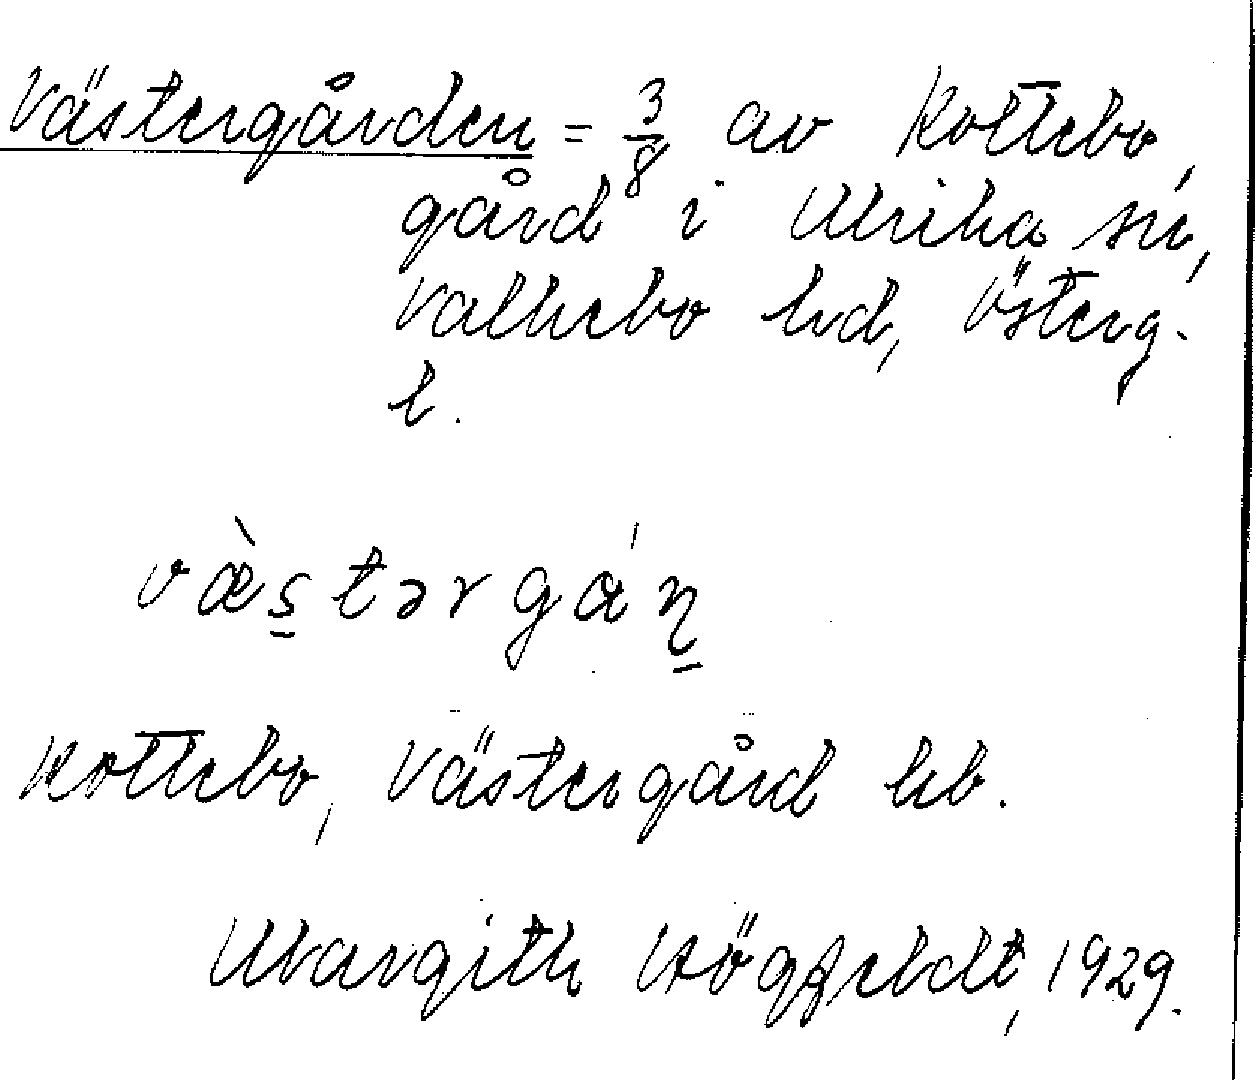 Västergården = 3/8 av Kottebo,
gård i Ulrika sn,
Valkebo hd, Österg.
l.
væ̀s̱tərgɑ́ṉ
Kottebo, Västergård kb.
Margith Högfeldt, 1929.